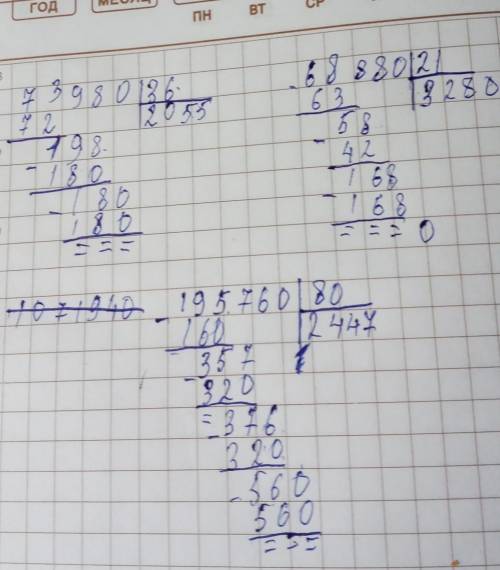 ГОД МЕСЯЦ ПН ВТ СР
73980 36
72 2055
198
- 180
- 180
180
= = =
- 68880 21
63 3280
58
- 42
168
- 168
= = = 0
1071940
- 195760 80
160 2447
357
- 320
= 376
- 320
- 560
560
= = =